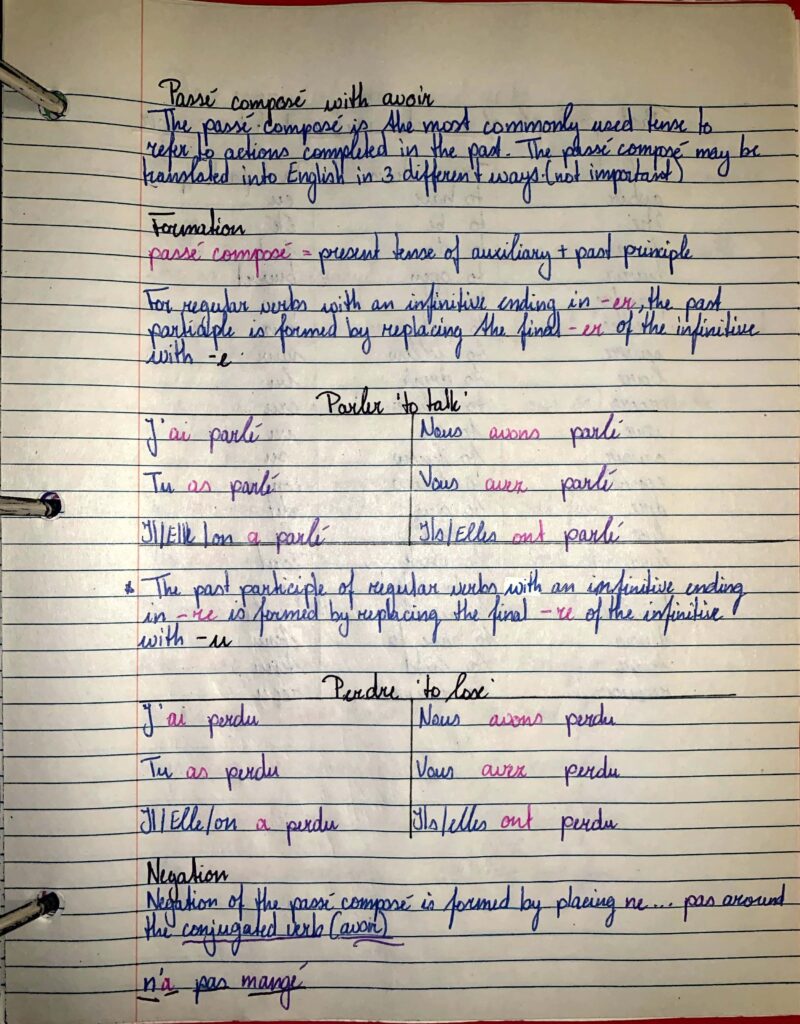 Passé composé with avoir
The passé composé is the most commonly used tense to
refer to actions completed in the past. The passé composé may be
translated into English in 3 different ways. (not important)
Formation
passé composé = present tense of auxiliary + past principle
For regular verbs with an infinitive ending in -er, the past
participle is formed by replacing the final -er of the infinitive
with -é.
Parler 'to talk'
J'ai parlé Nous avons parlé
Tu as parlé Vous avez parlé
Il/Elle/on a parlé Ils/Elles ont parlé
* The past participle of regular verbs with an infinitive ending
in -re is formed by replacing the final -re of the infinitive
with -u
Perdre 'to lose'
J'ai perdu Nous avons perdu
Tu as perdu Vous avez perdu
Il/Elle/on a perdu Ils/elles ont perdu
Negation
Negation of the passé composé is formed by placing ne... pas around
the conjugated verb (avoir)
n'a pas mangé